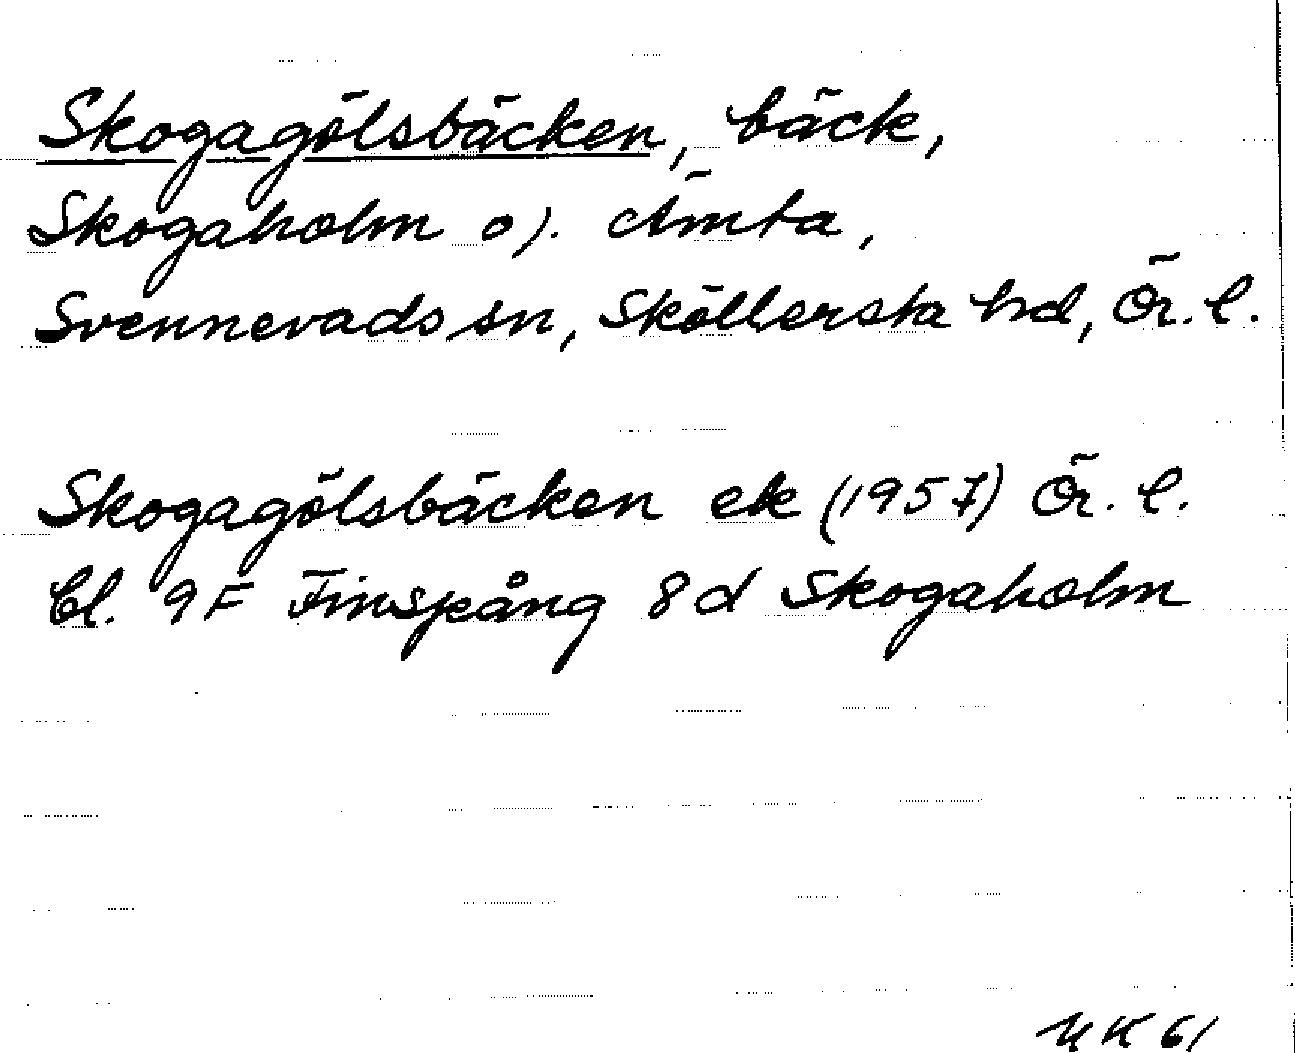 Skogagölsbäcken, bäck,
Skogaholm o). Ämta,
Svennevads sn, Sköllersta hd, Ör. l.
Skogagölsbäcken ek (1957) Ör. l.
bl. 9F Finspång 8d Skogaholm
61